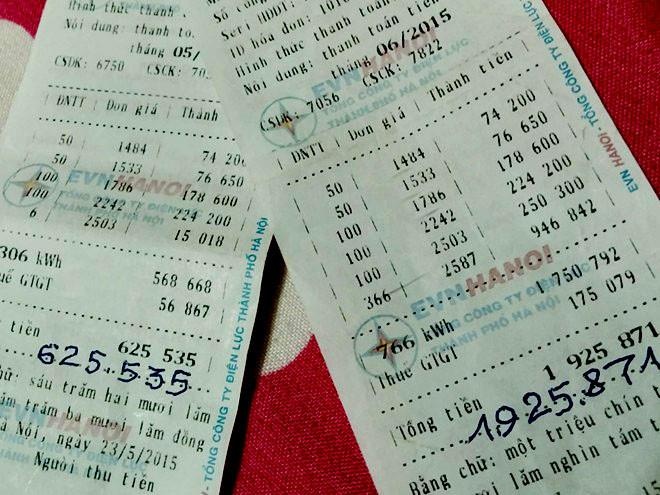 Hình thức thanh
Nội dung: thanh to.
tháng 05/
CSDK: 6750 CSCK: 70
ĐNTT | Đơn giá | Thành
50 1484 74 200
50 1533 76 650
100 1786 178 600
100 2242 224 200
6 2503 15 018
306 kWh 568 668
Thuế GTGT 56 867
tiền 625 535
625.535
chữ: sáu trăm hai mươi lăm
trăm ba mươi lăm đồng
Hà Nội, ngày 23/5/2015
Người thu tiền
EVNHANOI
TỔNG CÔNG TY ĐIỆN LỰC
THÀNH PHỐ HÀ NỘI
TỔNG CÔNG TY ĐIỆN LỰC THÀNH PHỐ HÀ NỘI
Số công
Seri HĐĐT:
ID hóa đơn: 1010
Hình thức thanh toán
Nội dung: thanh toán tiền
tháng 06/2015
CSDK: 7056 CSCK: 7822
ĐNTT | Đơn giá | Thành tiền
50 1484 74 200
50 1533 76 650
100 1786 178 600
100 2242 224 200
100 2503 250 300
366 2587 946 842
766 kWh 1 750 792
Thuế GTGT 175 079
Tổng tiền 1 925 871
1.925.871
Bằng chữ: một triệu chín t
lăm nghìn tám t
EVNHANOI
TỔNG CÔNG TY ĐIỆN LỰC
THÀNH PHỐ HÀ NỘI
EVN HANOI - TỔNG CÔNG TY ĐIỆN LỰC